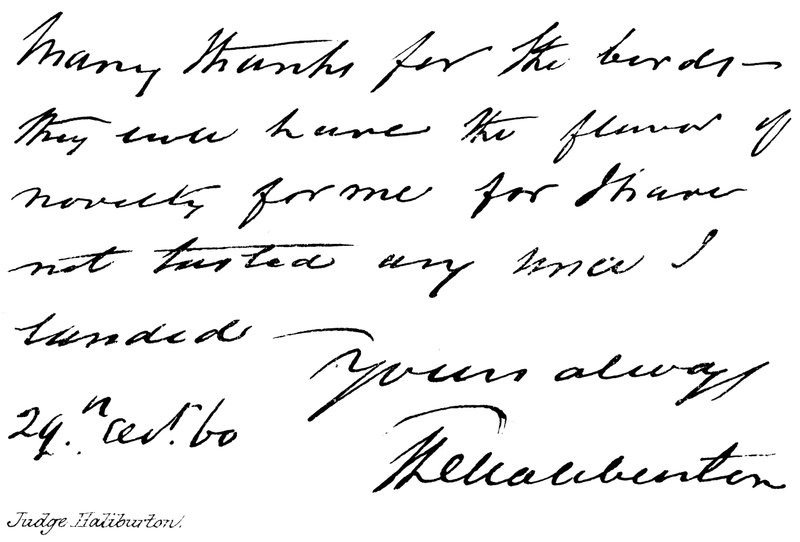 Many thanks for the birds—
they will have the flavor of
novelty for me for I have
not tasted any since I
landed —
Yours always
Th C Haliburton
29.
60
Judge Haliburton.